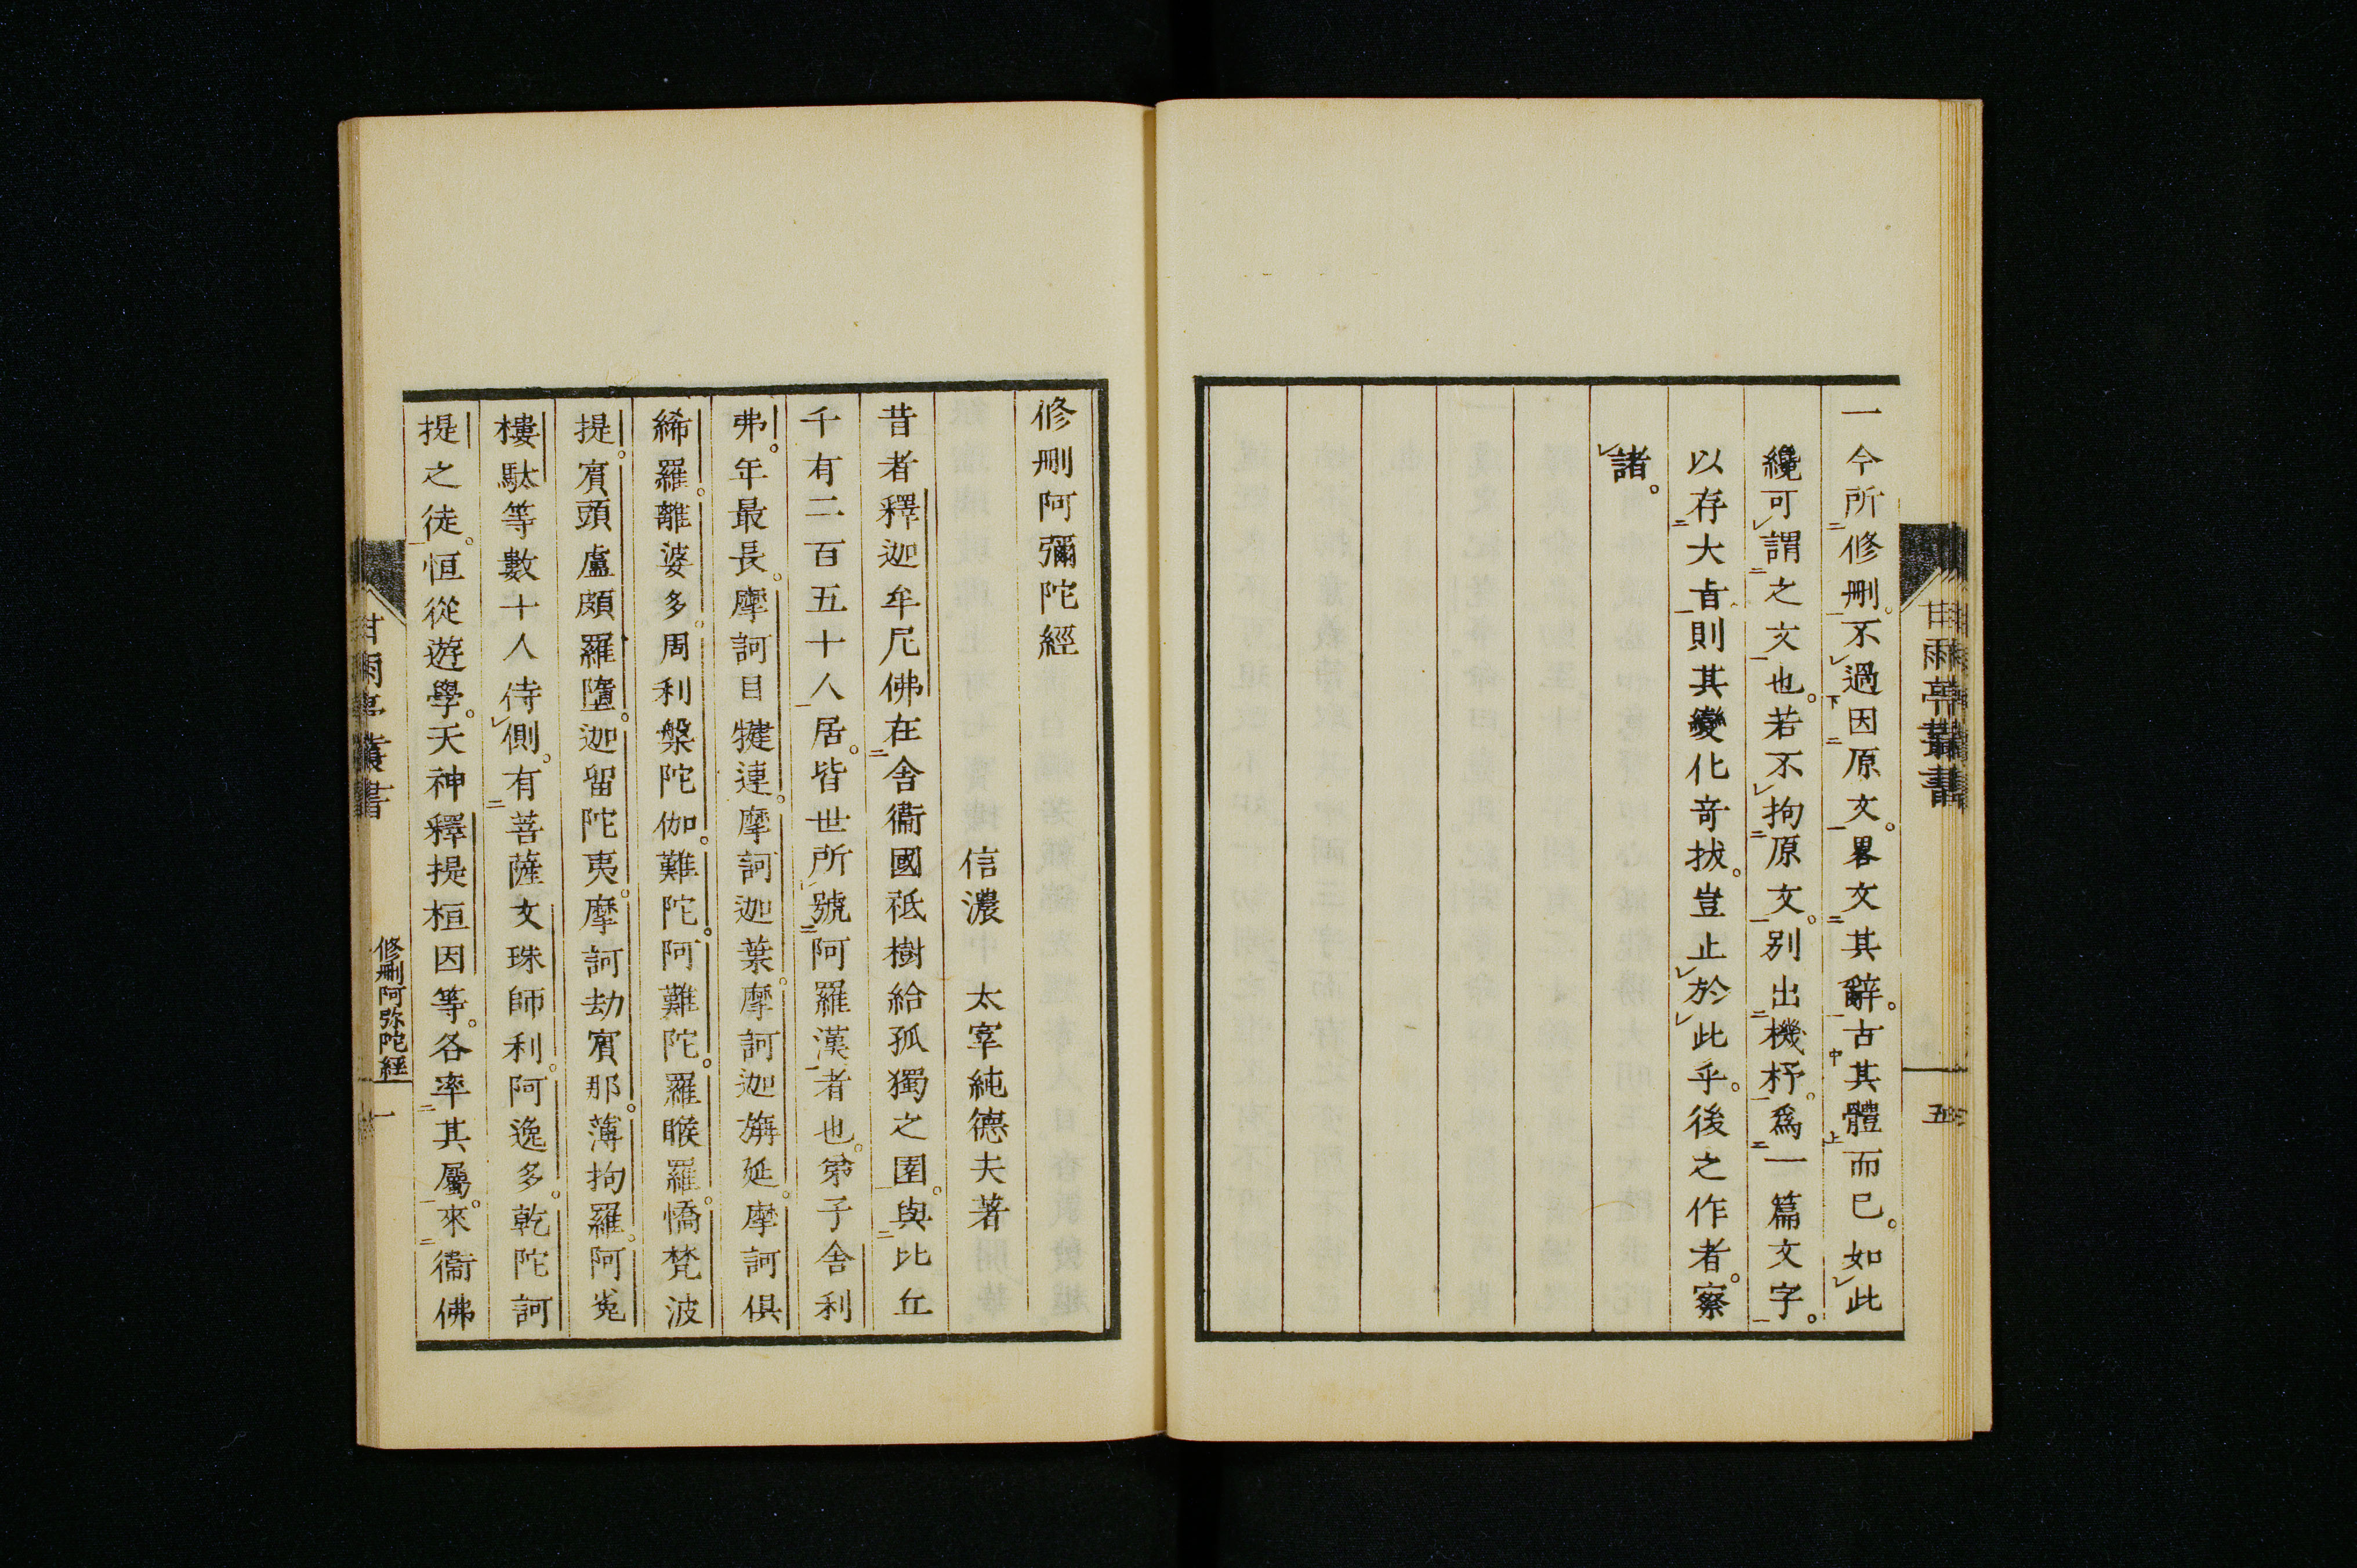 一今所修删。不過因原文。畧文其辭。古其體而已。如此
纔可謂之文也。若不拘原文。别出機杼。爲一篇文字。
以存大旨。則其變化竒拔。豈止於此乎。後之作者。察
諸。
甘雨亭叢書
五
修删阿彌陀經
信濃 太宰純德夫著
昔者釋迦牟尼佛在舍衞國祇樹給孤獨之園。與比丘
千有二百五十人居。皆世所號阿羅漢者也。弟子舍利
弗。年最長。摩訶目犍連。摩訶迦葉。摩訶迦旃延。摩訶俱
絺羅。離婆多。周利槃陀伽。難陀。阿難陀。羅睺羅。憍梵波
提。賓頭盧頗羅墮。迦留陀夷。摩訶劫賓那。薄拘羅。阿㝹
樓馱等數十人侍側。有菩薩文珠師利。阿逸多。乾陀訶
提之徒。恒從遊學。天神釋提桓因等。各率其屬。來衞佛
甘雨亭叢書
修删阿弥陀經
一